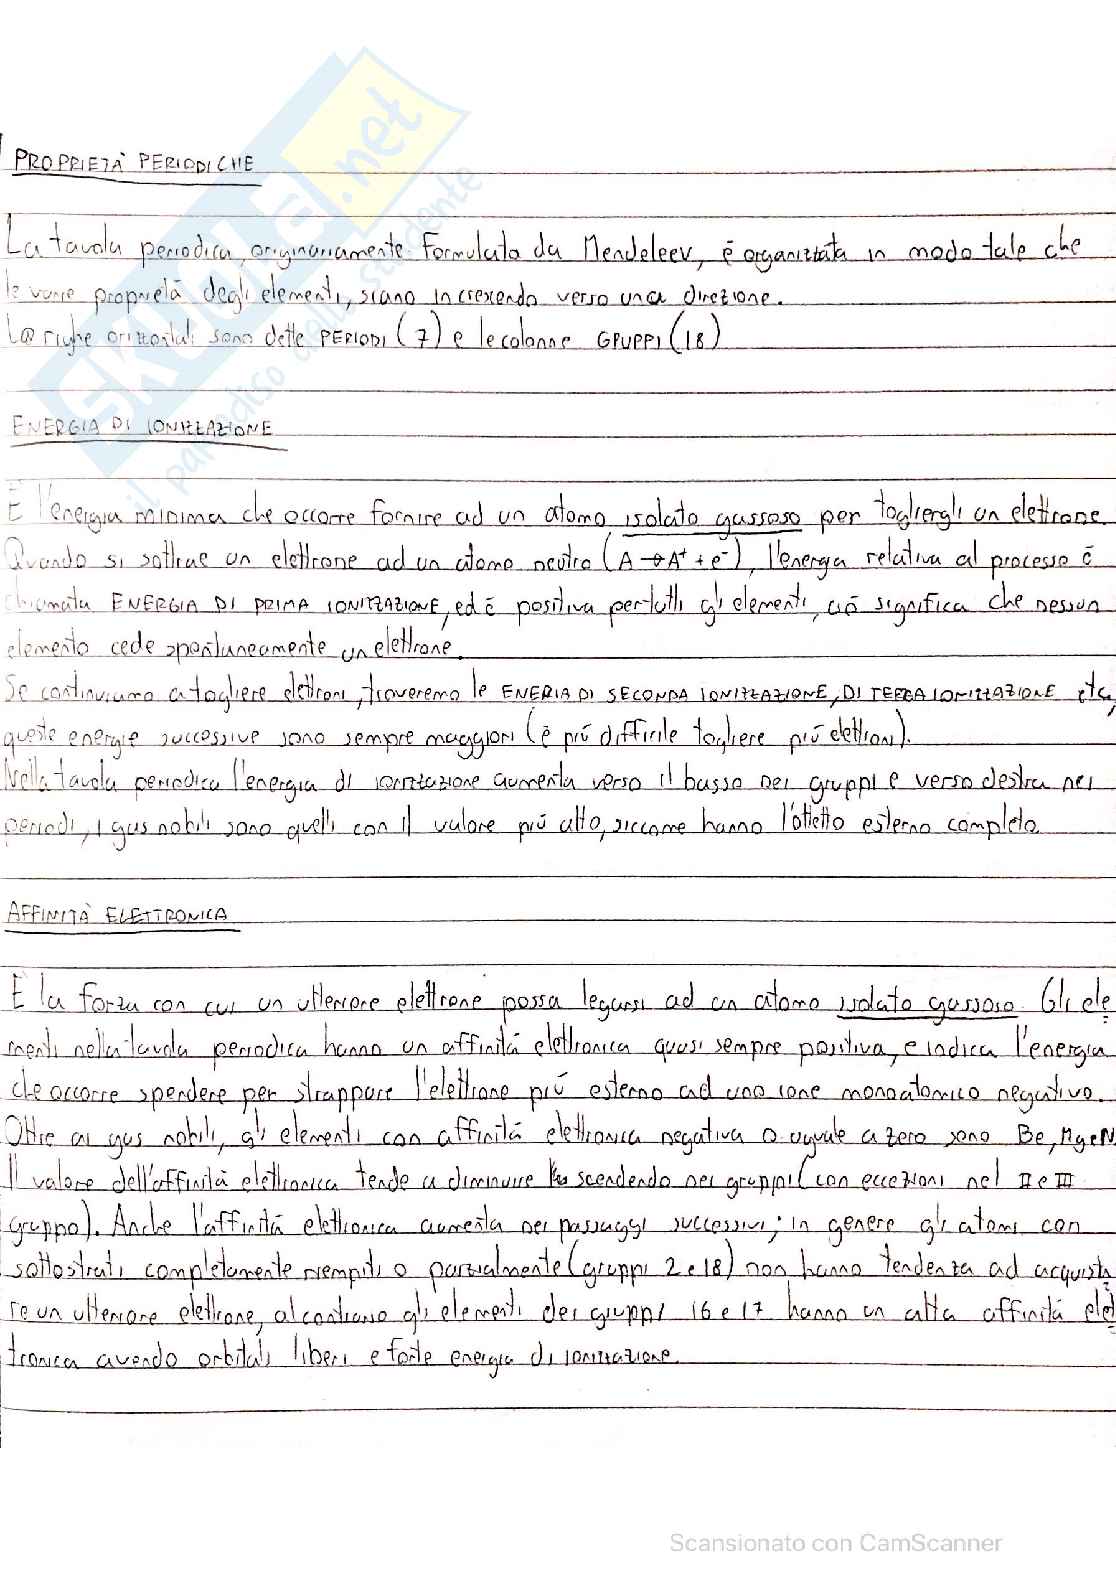 PROPRIETÀ PERIODICHE
La tavola periodica, originariamente formulata da Mendeleev, è organizzata in modo tale che
le varie proprietà degli elementi, siano in crescendo verso una direzione.
Le righe orizzontali sono dette PERIODI (7) e le colonne GRUPPI (18)
ENERGIA DI IONIZZAZIONE
È l'energia minima che occorre fornire ad un atomo isolato gassoso per togliergli un elettrone.
Quando si sottrae un elettrone ad un atomo neutro (A → A⁺ + e⁻), l'energia relativa al processo è
chiamata ENERGIA DI PRIMA IONIZZAZIONE, ed è positiva per tutti gli elementi, ciò significa che nessun
elemento cede spontaneamente un elettrone.
Se continuiamo a togliere elettroni, troveremo le ENERIA DI SECONDA IONIZZAZIONE, DI TERZA IONIZZAZIONE etc,
queste energie successive sono sempre maggiori (è più difficile togliere più elettroni).
Nella tavola periodica l'energia di ionizzazione aumenta verso il basso nei gruppi e verso destra nei
periodi, i gas nobili sono quelli con il valore più alto, siccome hanno l'ottetto esterno completo.
AFFINITÀ ELETTRONICA
È la forza con cui un ulteriore elettrone possa legarsi ad un atomo isolato gassoso. Gli ele
menti nella tavola periodica hanno un affinità elettronica quasi sempre positiva, e indica l'energia
che occorre spendere per strappare l'elettrone più esterno ad uno ione monoatomico negativo.
Oltre ai gas nobili, gli elementi con affinità elettronica negativa o uguale a zero sono Be, Mg e N
Il valore dell'affinità elettronica tende a diminuire scendendo nei gruppi (con eccezioni nel II e III
gruppo). Anche l'affinità elettronica aumenta nei passaggi successivi; in genere gli atomi con
sottostrati completamente riempiti o parzialmente (gruppi 2 e 18) non hanno tendenza ad acquista
re un ulteriore elettrone, al contrario gli elementi dei gruppi 16 e 17 hanno un alta affinità elet
tronica avendo orbitali liberi e forte energia di ionizzazione.
skuola.net
il paradiso dello studente
Scansionato con CamScanner